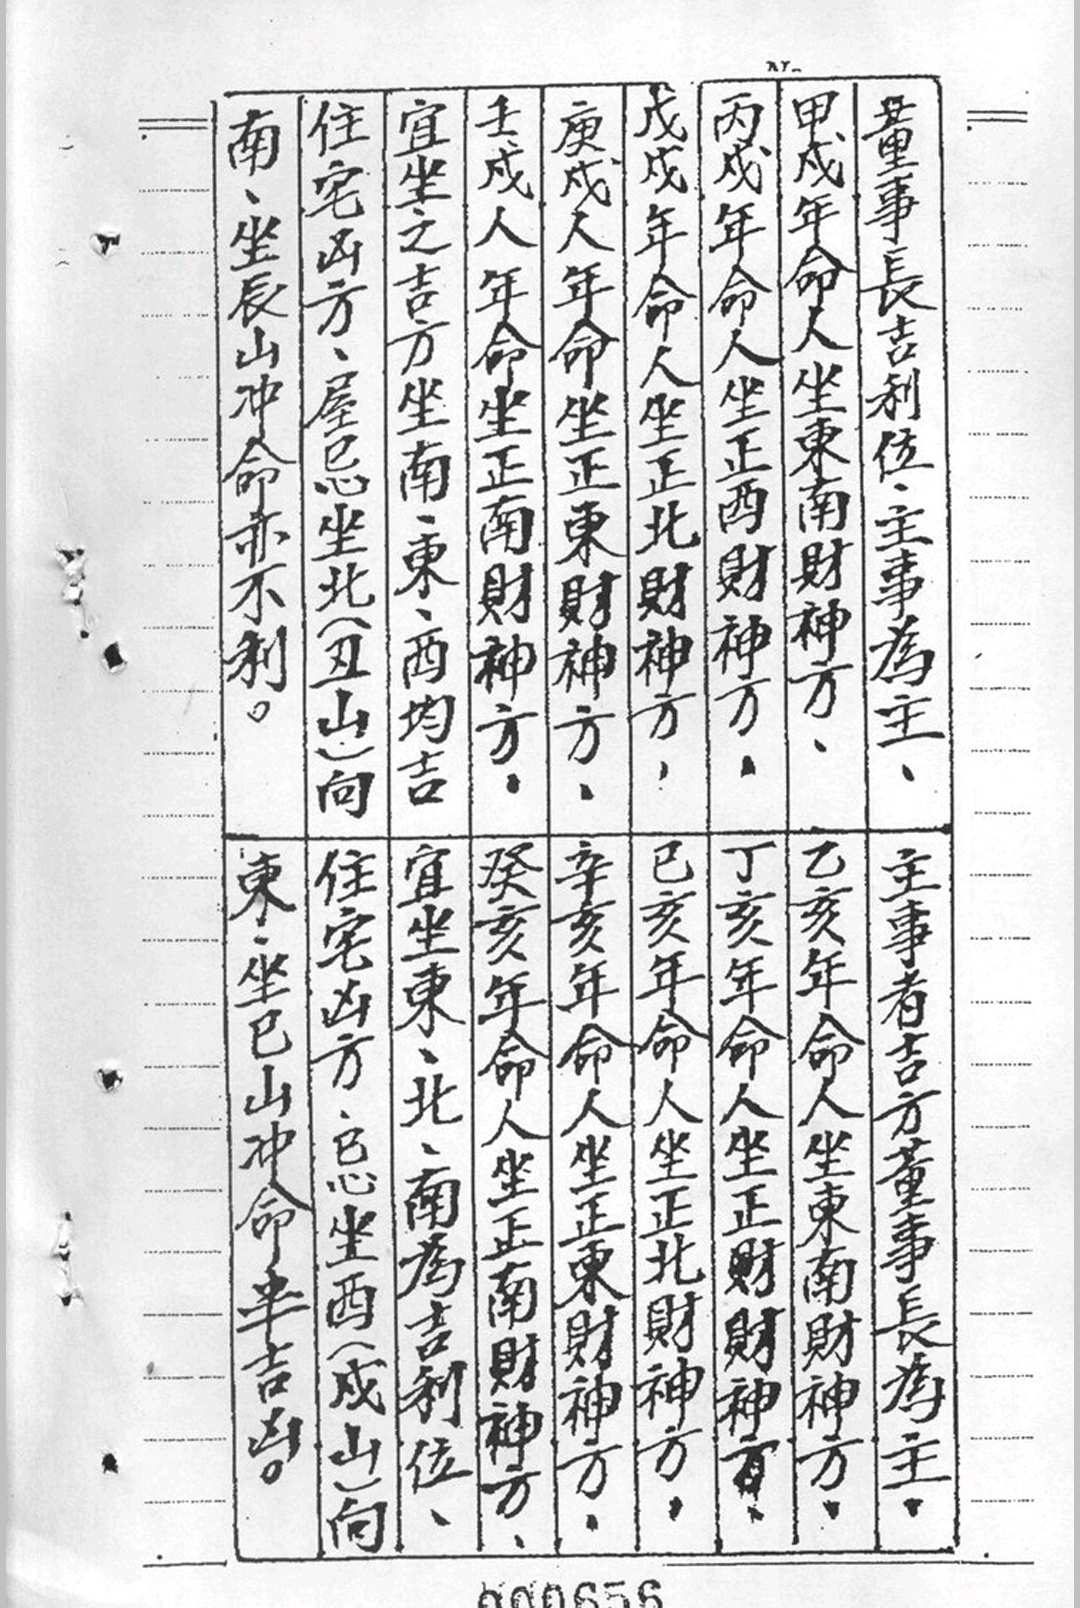 董事長吉利位、主事為主、
甲戌年命人坐東南財神方、
丙戌年命人坐正西財神方。
戊戌年命人坐正北財神方，
庚戌人年命坐正東財神方、
壬戌人年命坐正南財神方。
宜坐之吉方坐南、東、西均吉
住宅凶方、屋忌坐北(丑山)向
南、坐辰山冲命亦不利。
主事者吉方董事長為主。
乙亥年命人坐東南財神方。
丁亥年命人坐正財財神方、
已亥年命人坐正北財神方。
辛亥年命人坐正東財神方。
癸亥年命人坐正南財神方、
宜坐東、北、南為吉利位、
住宅凶方、忌坐西(戌山)向
東、坐巳山冲命半吉凶。
000656